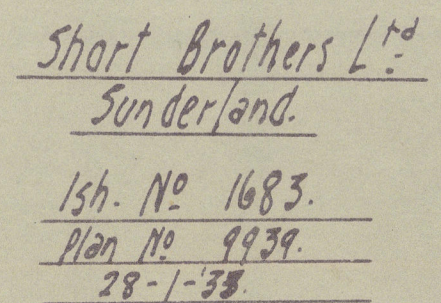 Short Brothers Ltd.
Sunderland.
Ish. No 1683.
Plan No 9939.
28-1-'33.